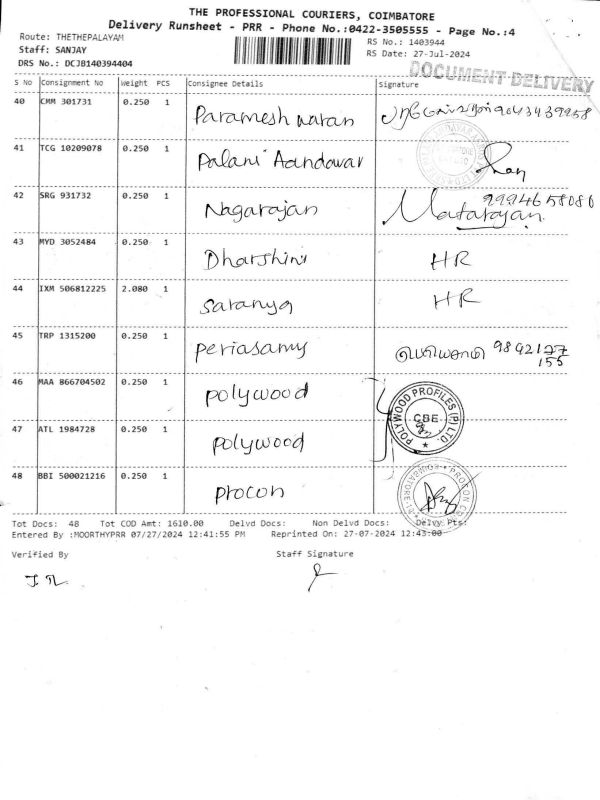 THE PROFESSIONAL COURIERS, COIMBATORE
Delivery Runsheet - PRR - Phone No.:0422-3505555 - Page No.:4
Route: THETHEPALAYAM
RS No.: 1403944
Staff: SANJAY
RS Date: 27-Jul-2024
DRS No.: DCJB140394404
DOCUMENT DELIVERY
S No Consignment No Weight PCS Consignee Details Signature
40 CMM 301731 0.250 1 Paramesh waran பரமேஸ்வரன்
41 TCG 10209078 0.250 1 Palani Aandavar
42 SRG 931732 0.250 1 Nagarajan 9994658080
43 MYD 3052484 0.250 1 Dharshini HR
44 IXM 506812225 2.080 1 Saranya HR
45 TRP 1315200 0.250 1 Periasamy பெரியசாமி 9892127 155
46 MAA 866704502 0.250 1 polywood
POLYWOOD PROFILES (P) LTD. CBE
47 ATL 1984728 0.250 1 polywood
48 BBI 500021216 0.250 1 Procon
Tot Docs: 48 Tot COD Amt: 1610.00 Delvd Docs: Non Delvd Docs: Delvy Pts:
Entered By :MOORTHYPRR 07/27/2024 12:41:55 PM Reprinted On: 27-07-2024 12:43:00
Verified By Staff Signature